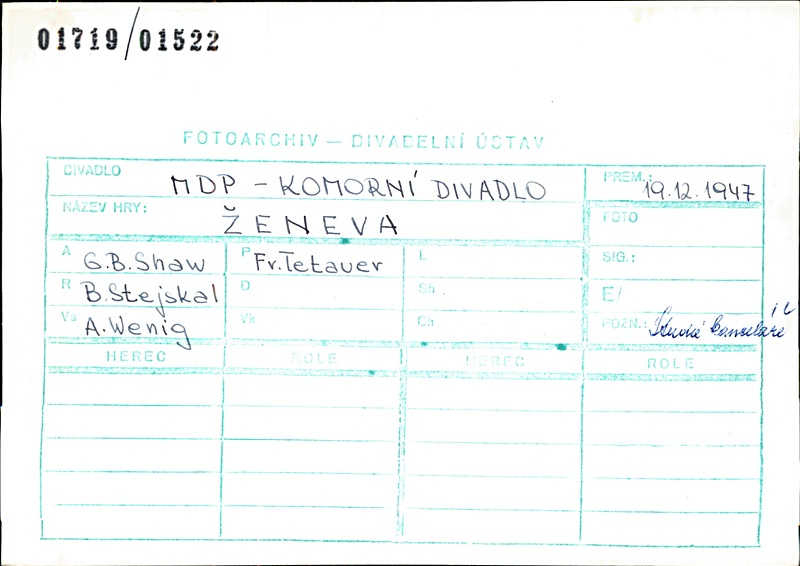 01719/01522
FOTOARCHIV — DIVADELNÍ ÚSTAV
DIVADLO MDP - KOMORNÍ DIVADLO
PREM.: 19.12.1947
NÁZEV HRY: ŽENEVA
FOTO
A G.B.Shaw
P Fr.Tetauer
L
SIG.:
R B.Stejskal
D
Sh.
E/
Vs A.Wenig
Vk
Ch
POZN.:
HEREC ROLE HEREC ROLE